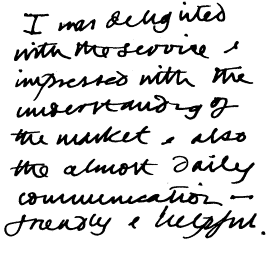 I was delighted
with the service &
impressed with the
understanding of
the market & also
the almost daily
communication –
friendly & helpful.